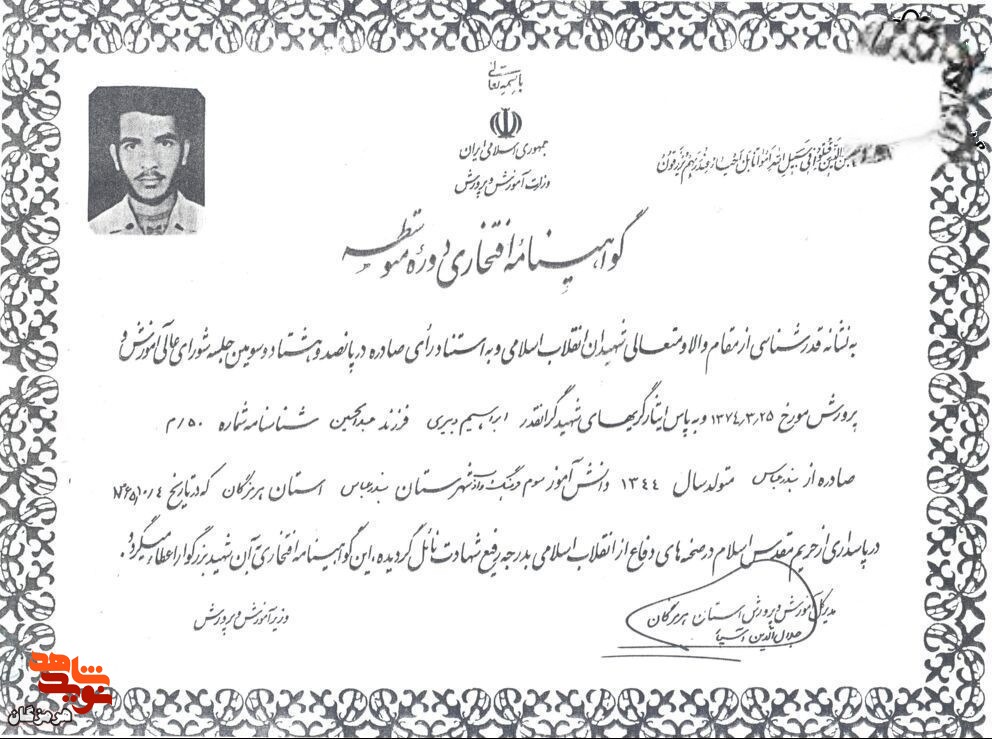 باسمه تعالی
جمهوری اسلامی ایران
وزارت آموزش و پرورش
الذین قتلوا فی سبیل الله امواتا بل احیاء عند ربهم یرزقون
گواهینامهٔ افتخاری دورهٔ متوسطه
به نشانه قدرشناسی از مقام والا و متعالی شهیدان انقلاب اسلامی و به استناد رأی صادره در پانصد و هشتاد و سومین جلسه شورای عالی آموزش و
پرورش مورخ ۱۳۷۴٫۳٫۲۵ و به پاس ایثارگریهای شهید گرانقدر ابراهیم دبیری فرزند عبدالحسین شناسنامه شماره
صادره از بندرعباس متولد سال ۱۳۴۴ دانش آموز سوم فرهنگ و ادب شهرستان بندرعباس استان هرمزگان که در تاریخ ۱۳۶۵٫۱۰٫۴
در پاسداری از حریم مقدس اسلام در صحنه های دفاع از انقلاب اسلامی بدرجه رفیع شهادت نائل گردیده، این گواهینامه افتخاری به آن شهید بزرگوار اعطا میگردد.
مدیرکل آموزش و پرورش استان هرمزگان
جلال الدین
وزیر آموزش و پرورش
نوید شاهد
هرمزگان